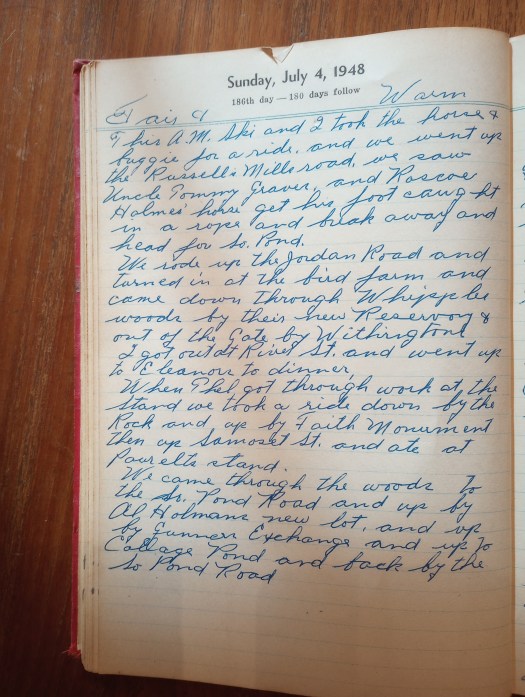 Sunday, July 4, 1948
186th day — 180 days follow
Fair & Warm
This A.M. Ski and I took the horse &
buggie for a ride, and we went up
the Russells Mills road, we saw
Uncle Tommy Graver, and Roscoe
Holmes' horse get his foot caught
in a rope and break away and
head for So. Pond.
We rode up the Jordan Road and
turned in at the bird farm and
came down through Whipple
woods by their new Reservoy &
out of the Gate by Withingtons
I got out at River St. and went up
to Eleanors to dinner,
When Phel got through work at the
Stand we took a ride down by the
Rock and up by Faith Monument
then up Samoset St. and ate at
stand.
We came through the woods to
the So. Pond Road and up by
Al Holmans new lot, and up
by Gunners Exchange and up to
College Pond and back by the
So Pond Road